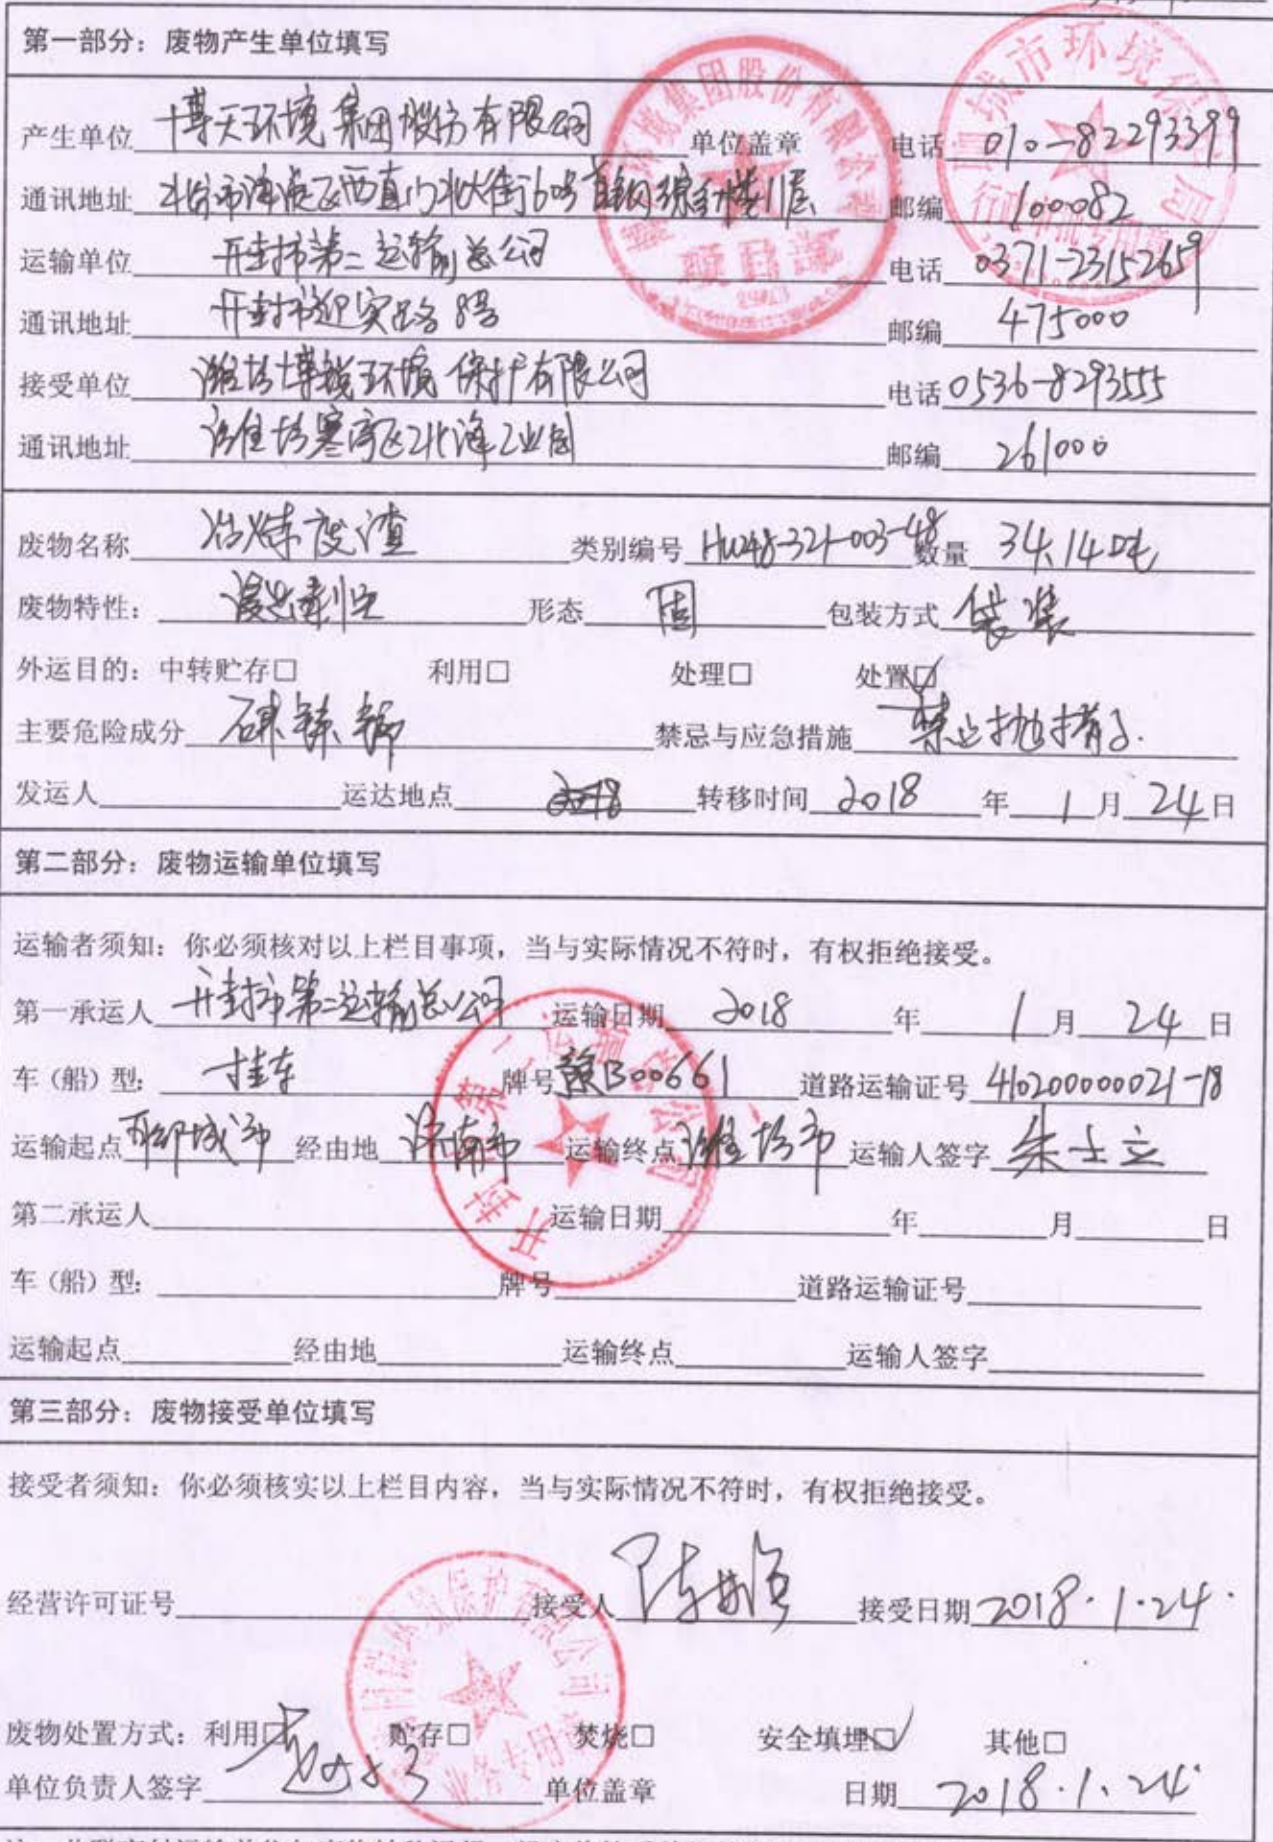 第一部分：废物产生单位填写
产生单位 博天环境集团股份有限公司 单位盖章 电话 010-82293399
通讯地址 北京市海淀区西直门北大街60号首钢综合楼11层 邮编 100082
运输单位 开封市第二运输总公司 电话 0371-23152659
通讯地址 开封市迎宾路8号 邮编 475000
接受单位 潍坊博锐环境保护有限公司 电话 0536-8293555
通讯地址 潍坊寒亭区北海工业园 邮编 261000
废物名称 冶炼废渣 类别编号 HW48-321-003-48 数量 34.14吨
废物特性： 形态 固 包装方式 袋装
外运目的：中转贮存□ 利用□ 处理□ 处置☑
主要危险成分 砷 镉 禁忌与应急措施 禁止抛撒
发运人 运达地点 2018 转移时间 2018 年 1 月 24 日
第二部分：废物运输单位填写
运输者须知：你必须核对以上栏目事项，当与实际情况不符时，有权拒绝接受。
第一承运人 开封市第二运输总公司 运输日期 2018 年 1 月 24 日
车（船）型： 挂车 牌号 豫B00661 道路运输证号 410200000021-18
运输起点 聊城市 经由地 济南市 运输终点 潍坊市 运输人签字 朱士立
第二承运人 运输日期 年 月 日
车（船）型： 牌号 道路运输证号
运输起点 经由地 运输终点 运输人签字
第三部分：废物接受单位填写
接受者须知：你必须核实以上栏目内容，当与实际情况不符时，有权拒绝接受。
经营许可证号 接受人 接受日期 2018.1.24.
废物处置方式：利用□ 贮存□ 焚烧□ 安全填埋☑ 其他□
单位负责人签字 单位盖章 日期 2018.1.24